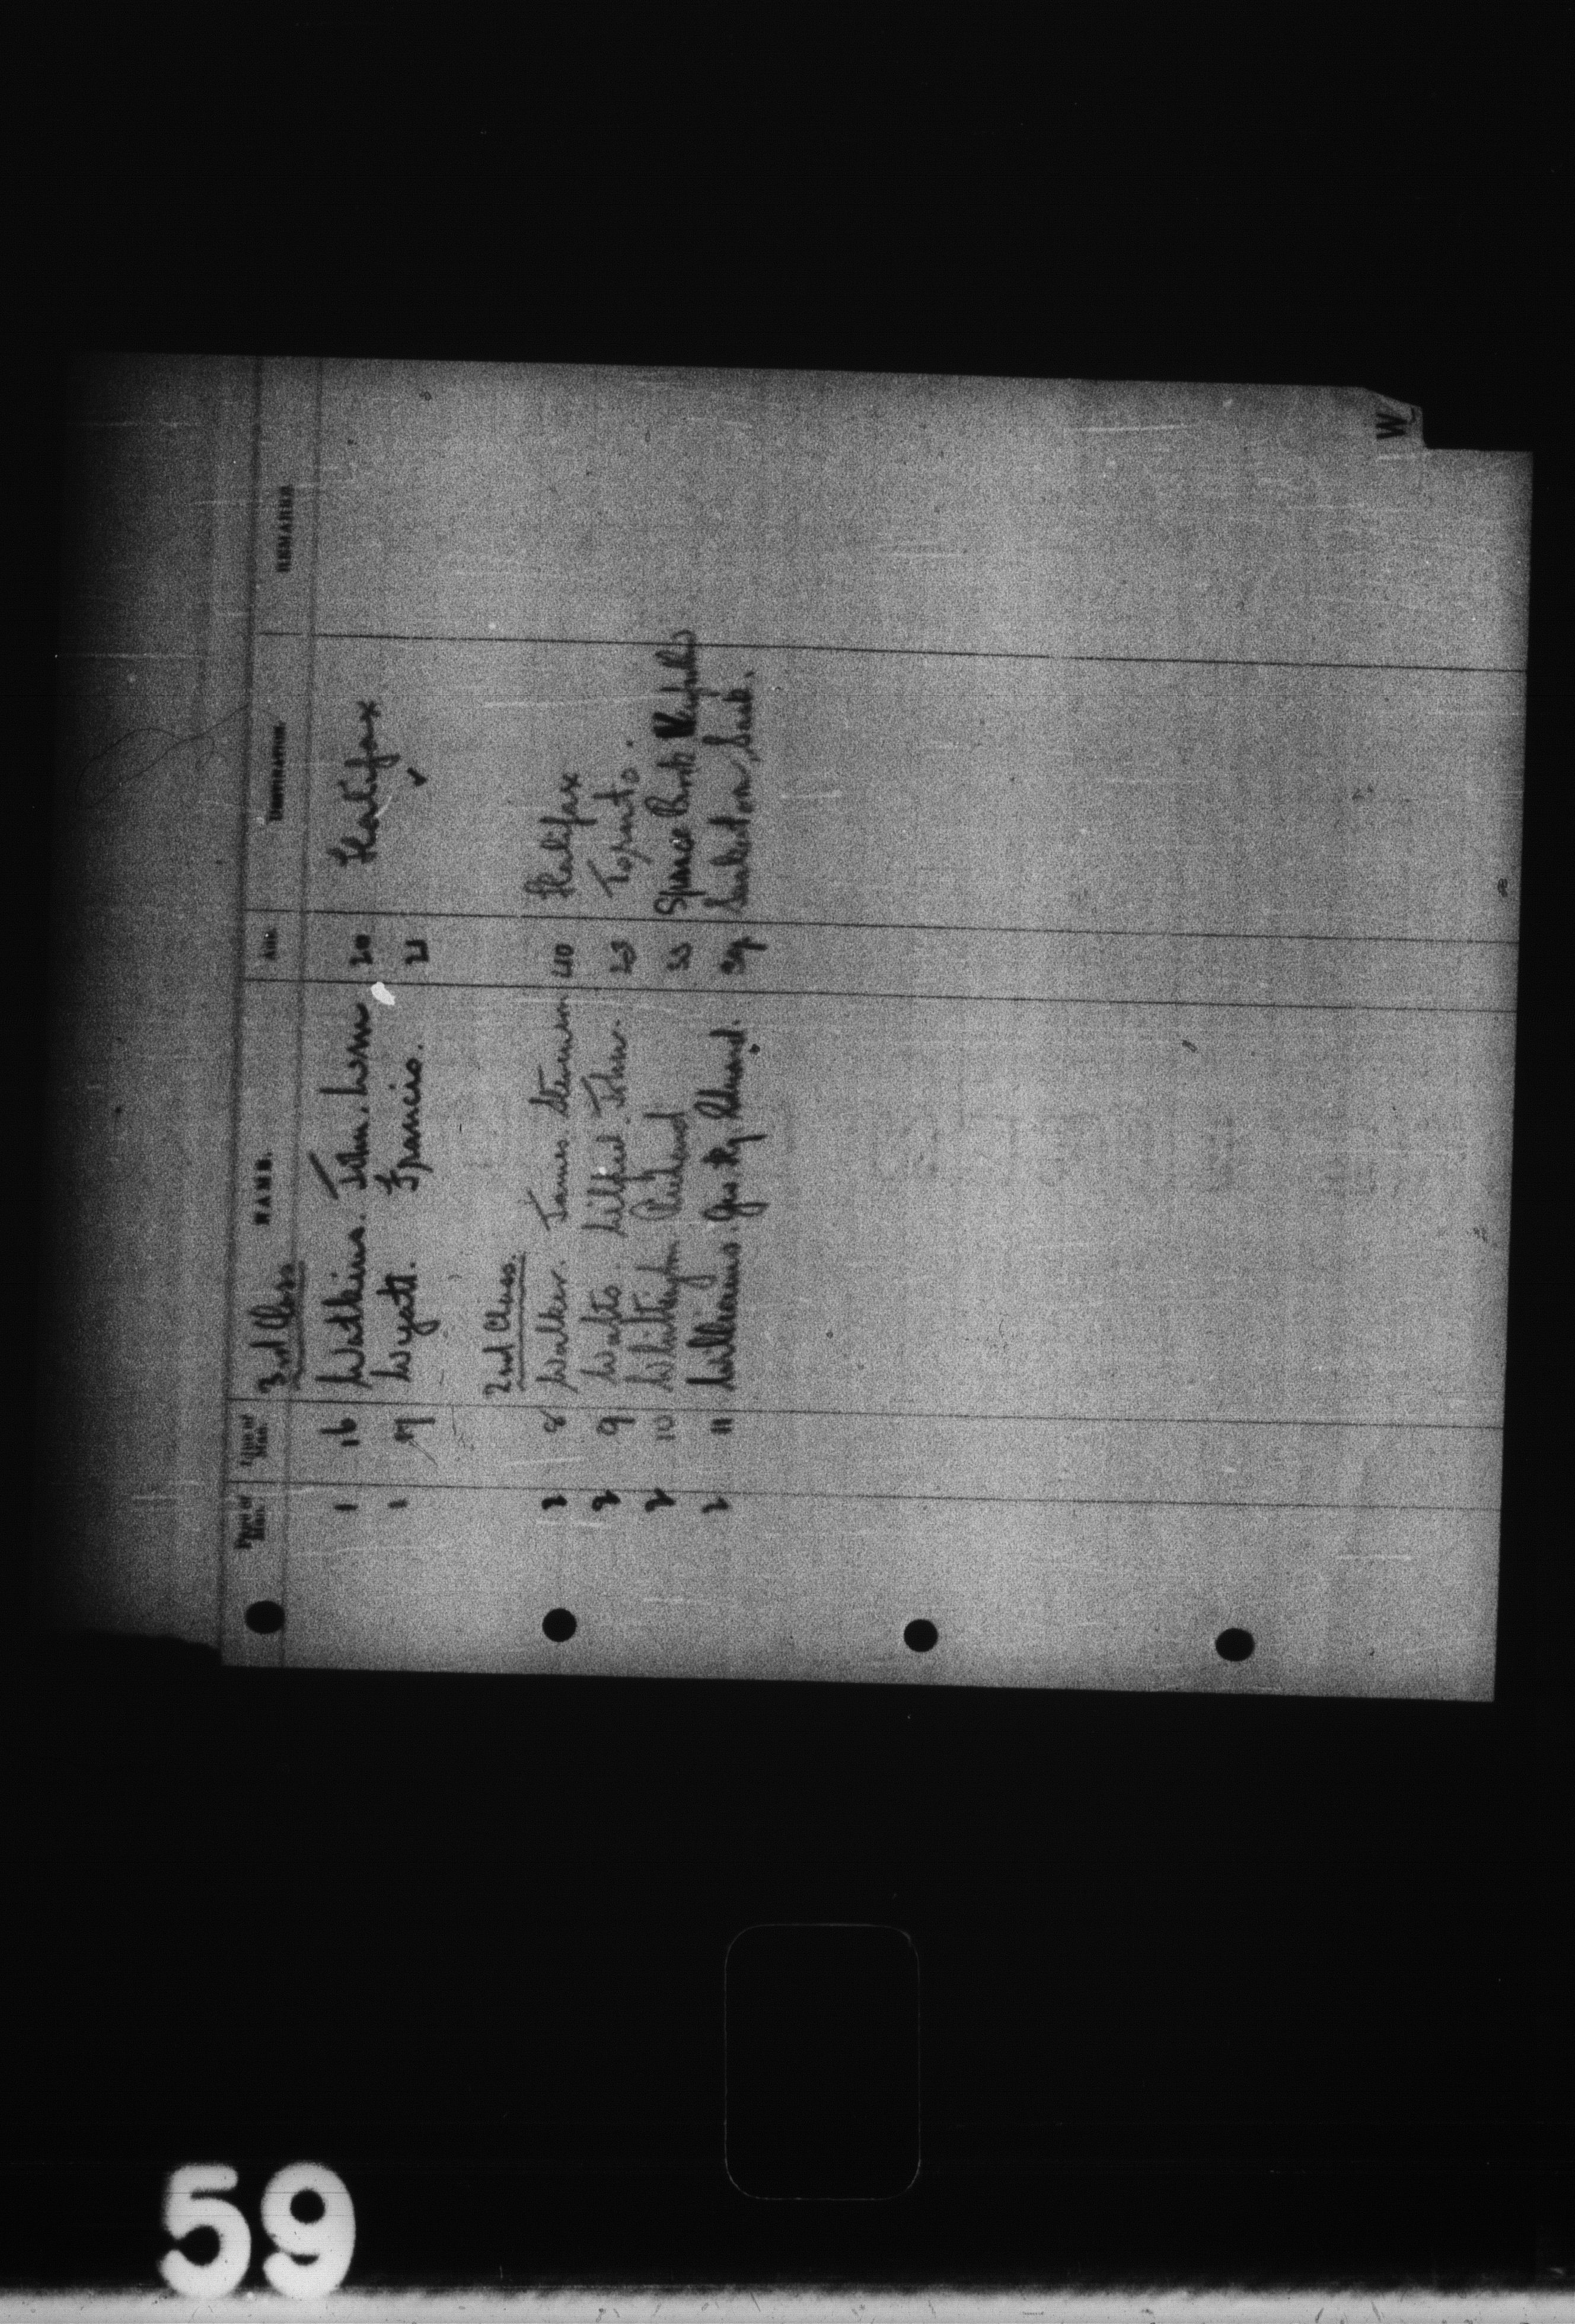 Page of Man. Line of Man. NAME. AGE. DESTINATION. REMARKS
3rd Class
1 16 Watkins. John. Wm 20 Halifax
1 17 Wyatt. Francis. 21 ✓
2nd Class.
2 8 Walker. James. Stevenson 40 Halifax
2 9 Watts. Wilfred. John. 23 Toronto.
2 10 Whittington Richard 33 Spence
2 11 Williams. Geo. Hy. Edward. 39 Sask.
W
59